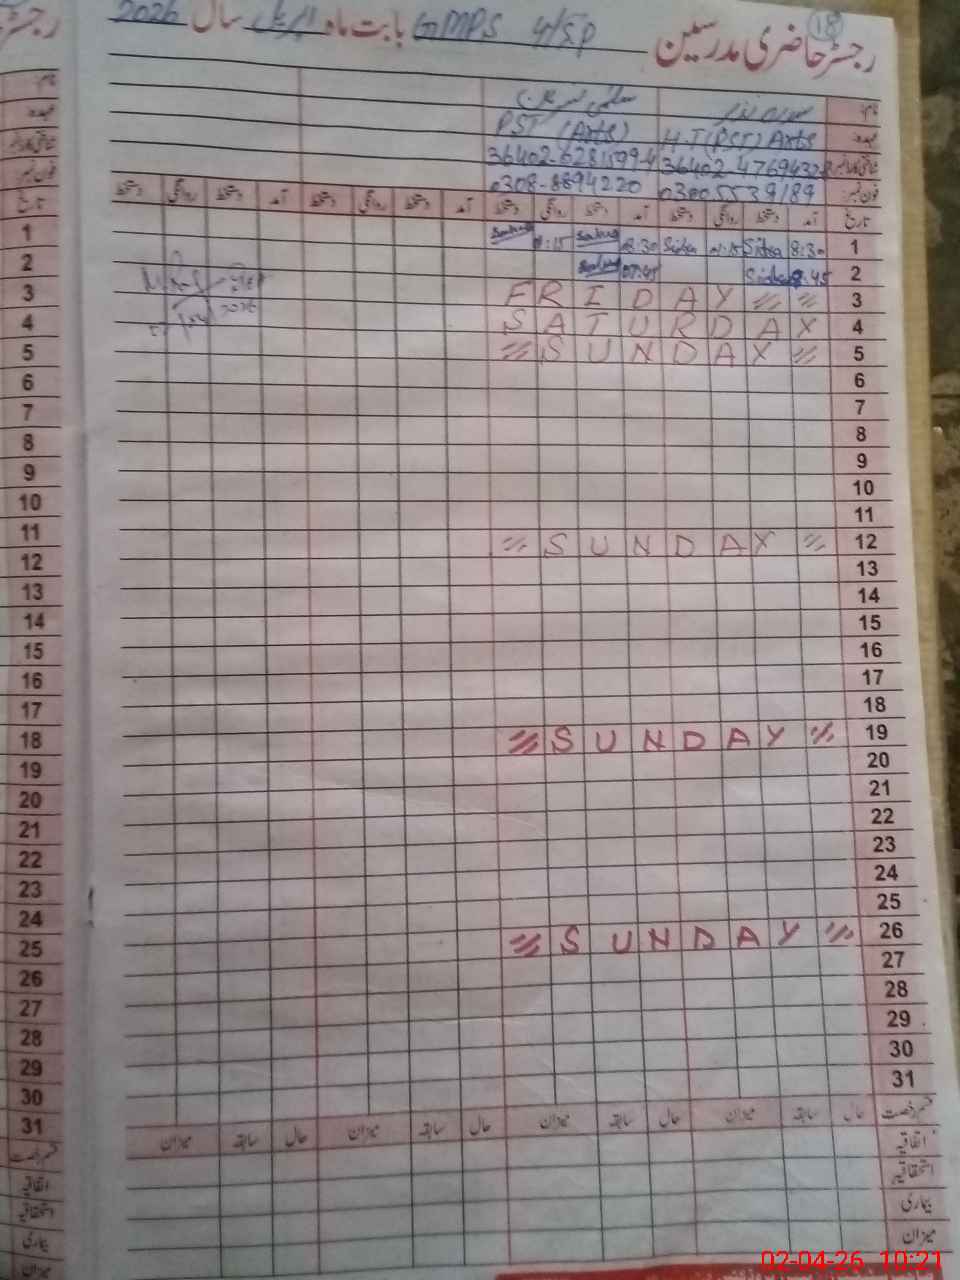 رجسٹر حاضری مدرسین GMPS 4/SP بابت ماہ اپریل سال 2026
18
نام
عہدہ PST (Arts) H.T (PST) Arts
36402-6281599-4 36402-4769432
فون نمبر 0308-8894220 03005539189
تاریخ آمد دستخط روانگی دستخط آمد دستخط روانگی دستخط آمد دستخط روانگی دستخط آمد دستخط روانگی دستخط
1 8:30 Sidra 01:15 Sidra 08:30 01:15 1
2 8:45 Sidra 07:45 2
3 FRIDAY 3
4 SATURDAY 4
5 SUNDAY 5
6 6
7 7
8 8
9 9
10 10
11 11
12 SUNDAY 12
13 13
14 14
15 15
16 16
17 17
18 18
19 SUNDAY 19
20 20
21 21
22 22
23 23
24 24
25 25
26 SUNDAY 26
27 27
28 28
29 29
30 30
31 31
قسم رخصت حال سابقہ میزان حال سابقہ میزان حال سابقہ میزان حال سابقہ میزان
اتفاقیہ
استحقاقیہ
بیماری
میزان
02-04-26 10:21